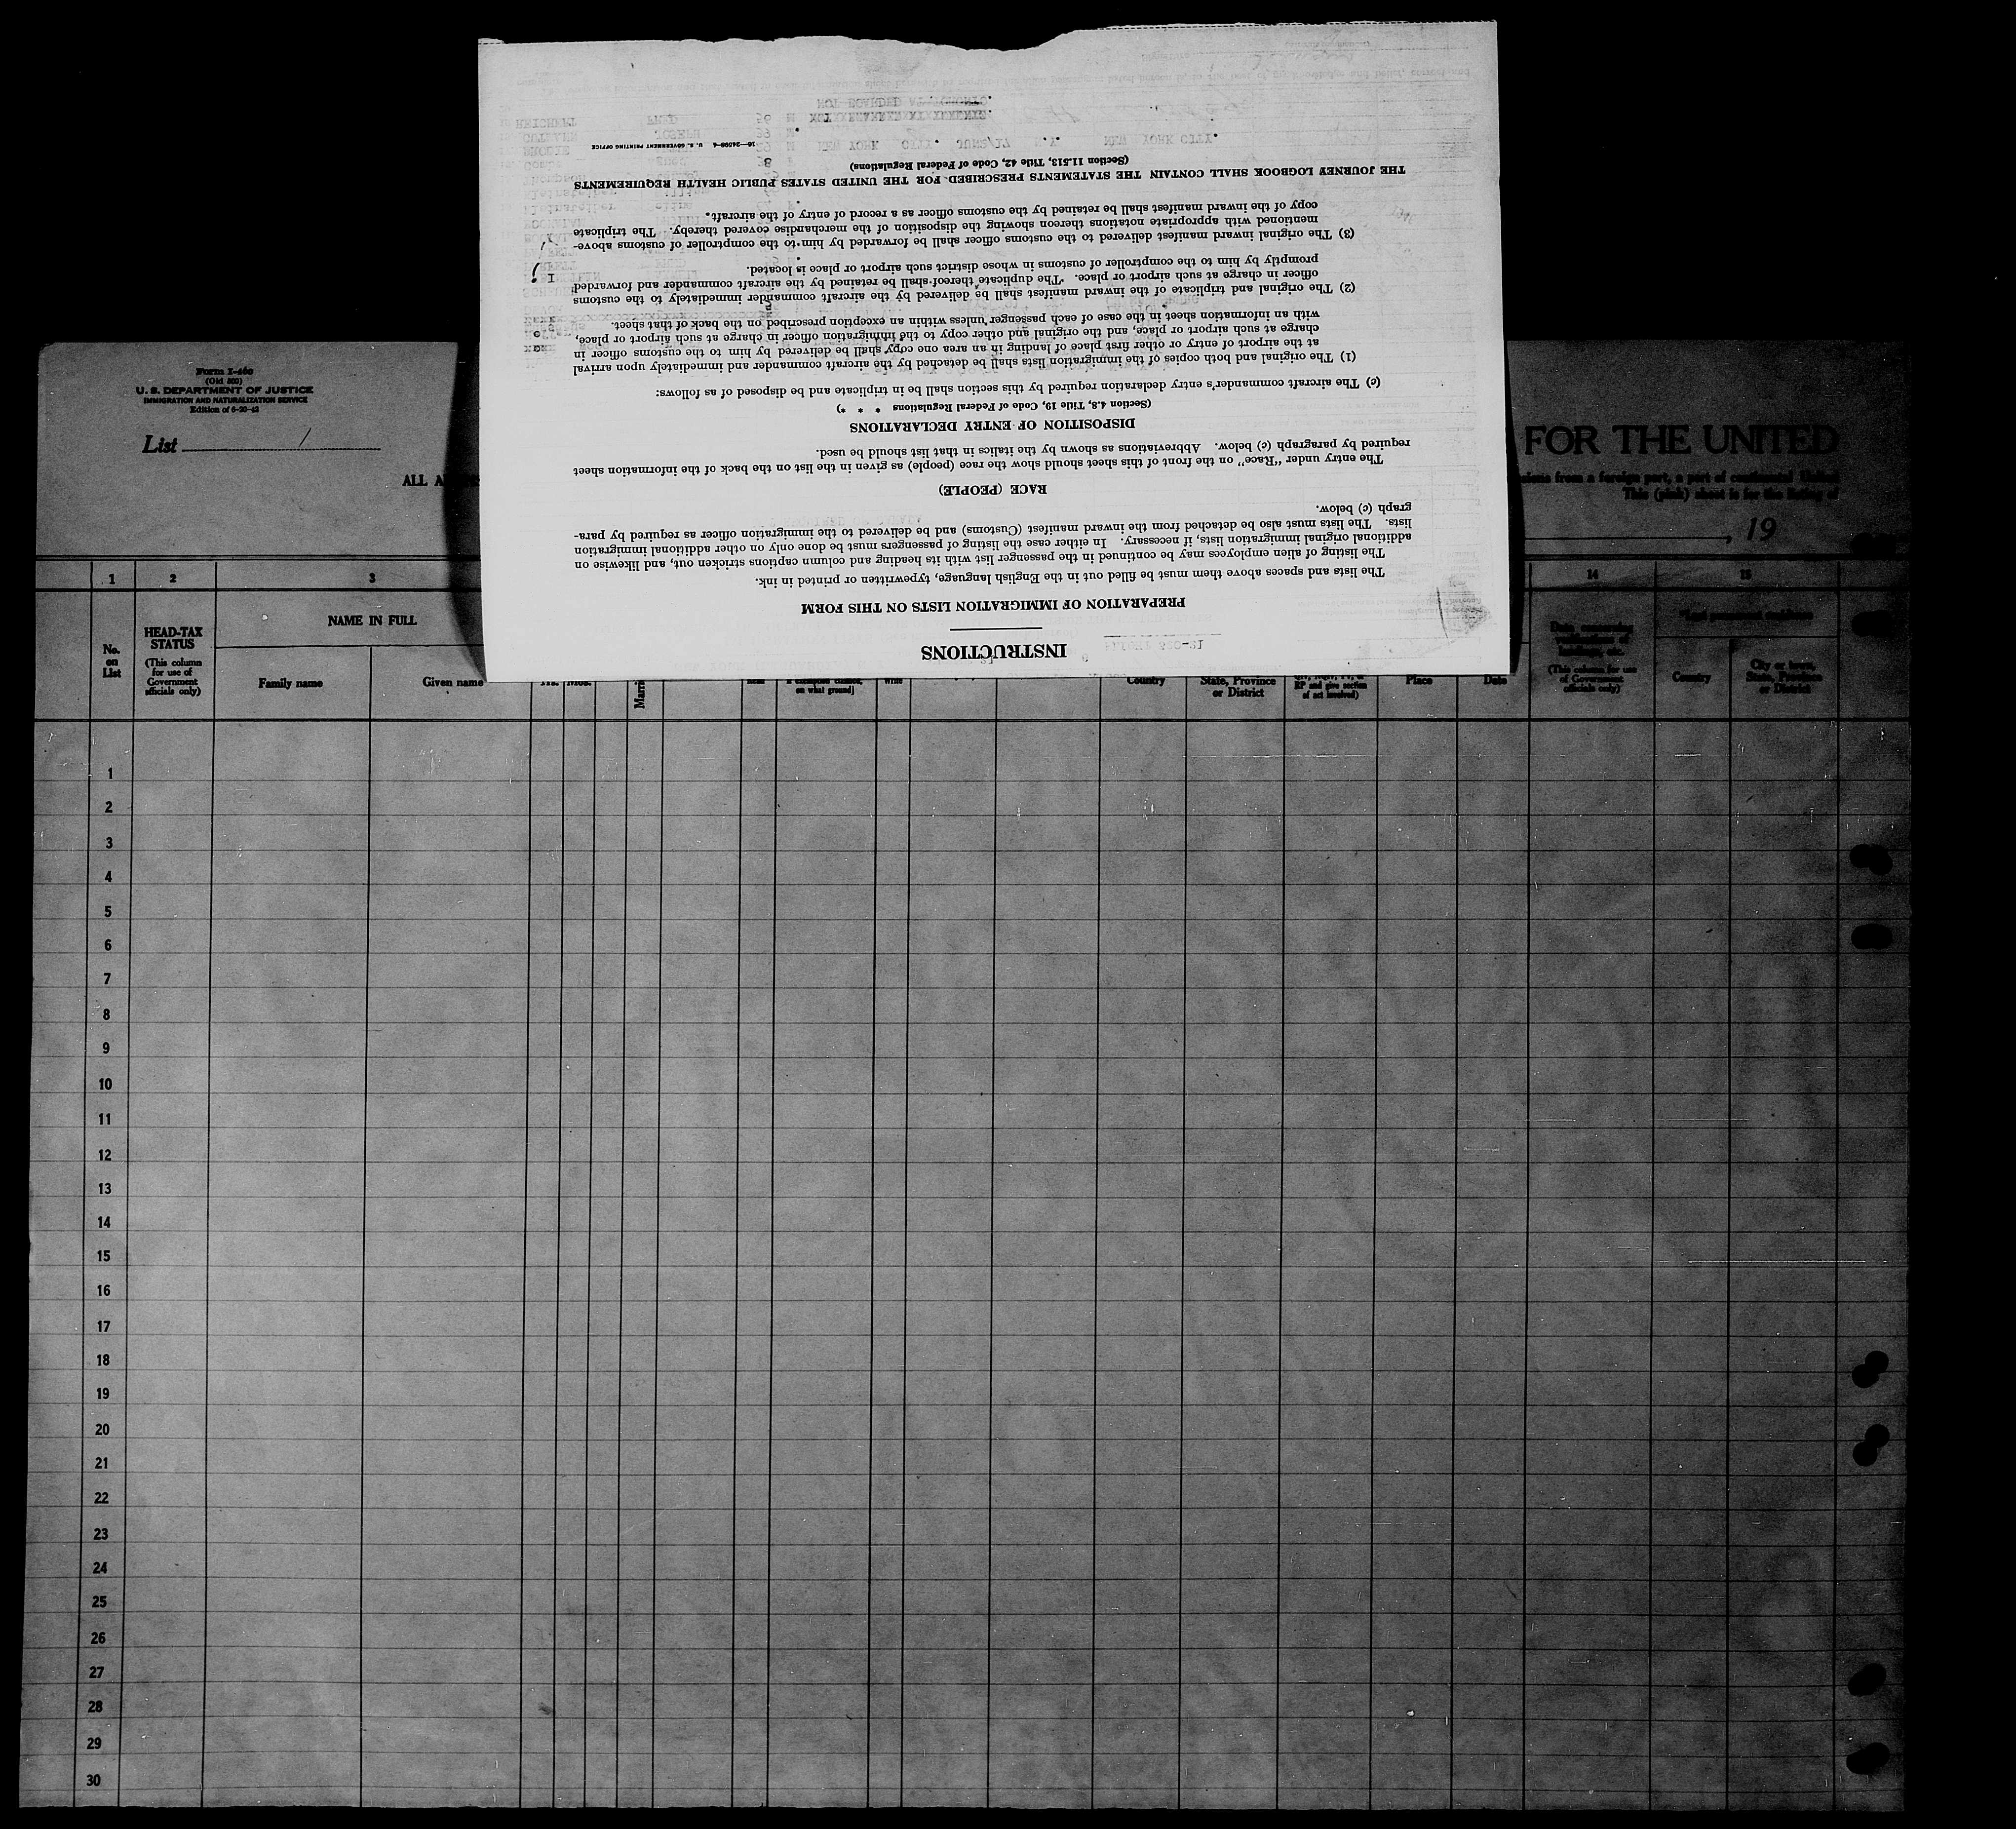 INSTRUCTIONS
PREPARATION OF IMMIGRATION LISTS ON THIS FORM
The lists and spaces above them must be filled out in the English language, typewritten or printed in ink.
The listing of alien employees may be continued in the passenger list with its heading and column captions stricken out, and likewise on
additional original immigration lists, if necessary. In either case the listing of passengers must be done only on other additional immigration
lists. The lists must also be detached from the inward manifest (Customs) and be delivered to the immigration officer as required by para-
graph (c) below.
RACE (PEOPLE)
The entry under "Race" on the front of this sheet should show the race (people) as given in the list on the back of the information sheet
required by paragraph (c) below. Abbreviations as shown by the italics in that list should be used.
DISPOSITION OF ENTRY DECLARATIONS
(Section 4.8, Title 19, Code of Federal Regulations * * *)
(c) The aircraft commander's entry declaration required by this section shall be in triplicate and be disposed of as follows:
(1) The original and both copies of the immigration lists shall be detached by the aircraft commander and immediately upon arrival
at the airport of entry or other first place of landing in an area one copy shall be delivered by him to the customs officer in
charge at such airport or place, and the original and other copy to the immigration officer in charge at such airport or place,
with an information sheet in the case of each passenger unless within an exception prescribed on the back of that sheet.
(2) The original and triplicate of the inward manifest shall be delivered by the aircraft commander immediately to the customs
officer in charge at such airport or place. The duplicate thereof shall be retained by the aircraft commander and forwarded
promptly by him to the comptroller of customs in whose district such airport or place is located.
(3) The original inward manifest delivered to the customs officer shall be forwarded by him to the comptroller of customs above-
mentioned with appropriate notations thereon showing the disposition of the merchandise covered thereby. The triplicate
copy of the inward manifest shall be retained by the customs officer as a record of entry of the aircraft.
THE JOURNEY LOGBOOK SHALL CONTAIN THE STATEMENTS PRESCRIBED FOR THE UNITED STATES PUBLIC HEALTH REQUIREMENTS
(Section 11.513, Title 42, Code of Federal Regulations)
16—24598-4 U. S. GOVERNMENT PRINTING OFFICE
(Old 500)
U. S. DEPARTMENT OF JUSTICE
IMMIGRATION AND NATURALIZATION SERVICE
Edition of 6-20-42
List 1
ALL
FOR THE UNITED
from a foreign port, a part of continental
This (pink) sheet is for the listing of
, 19
1 2 3 14 15
No. on List
HEAD-TAX STATUS
(This column for use of Government officials only)
NAME IN FULL
Family name
Given name
Yrs. Mos.
on what ground]
Country
State, Province or District
and give section of act involved)
Place
Date
(This column for use of Government officials only)
Country
City or town, State, Province or District
1
2
3
4
5
6
7
8
9
10
11
12
13
14
15
16
17
18
19
20
21
22
23
24
25
26
27
28
29
30